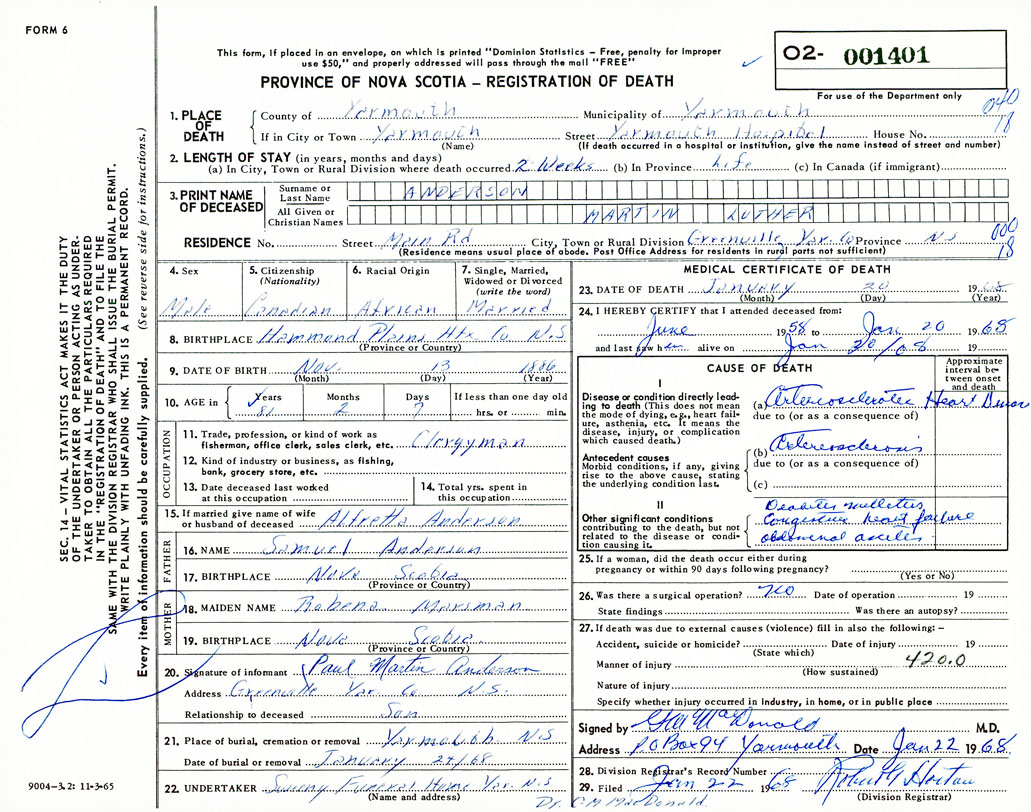 FORM 6
This form, if placed in an envelope, on which is printed "Dominion Statistics – Free, penalty for improper
use $50," and properly addressed will pass through the mail "FREE"
PROVINCE OF NOVA SCOTIA – REGISTRATION OF DEATH
O2- 001401
For use of the Department only
040
18
1. PLACE OF DEATH
County of Yarmouth Municipality of Yarmouth
If in City or Town Yarmouth Street Yarmouth Hospital House No.
(Name) (If death occurred in a hospital or institution, give the name instead of street and number)
2. LENGTH OF STAY (in years, months and days)
(a) In City, Town or Rural Division where death occurred 2 Weeks (b) In Province Life (c) In Canada (if immigrant)
3. PRINT NAME OF DECEASED
Surname or Last Name ANDERSON
All Given or Christian Names MARTIN LUTHER
RESIDENCE No. Street Main Rd City, Town or Rural Division Greenville Yar. Co Province NS
000
18
(Residence means usual place of abode. Post Office Address for residents in rural parts not sufficient)
4. Sex
Male
5. Citizenship
(Nationality)
Canadian
6. Racial Origin
African
7. Single, Married,
Widowed or Divorced
(write the word)
Married
8. BIRTHPLACE Hammond Plains Hfx Co N.S
(Province or Country)
9. DATE OF BIRTH Nov. 13 1886
(Month) (Day) (Year)
10. AGE in Years Months Days If less than one day old
81 2 7 hrs. or min.
OCCUPATION
11. Trade, profession, or kind of work as
fisherman, office clerk, sales clerk, etc. Clergyman
12. Kind of industry or business, as fishing,
bank, grocery store, etc.
13. Date deceased last worked
at this occupation
14. Total yrs. spent in
this occupation
15. If married give name of wife
or husband of deceased Alfretta Anderson
FATHER
16. NAME Samuel Anderson
17. BIRTHPLACE Nova Scotia
(Province or Country)
MOTHER
18. MAIDEN NAME Robena Marsman
19. BIRTHPLACE Nova Scotia
(Province or Country)
20. Signature of informant Paul Martin Anderson
Address Greenville Yar. Co. N.S.
Relationship to deceased Son
21. Place of burial, cremation or removal Yarmouth N.S
Date of burial or removal January /68
22. UNDERTAKER Sweeny Funeral Home Yar. N.S
(Name and address)
MEDICAL CERTIFICATE OF DEATH
23. DATE OF DEATH January 20 1968
(Month) (Day) (Year)
24. I HEREBY CERTIFY that I attended deceased from:
June 1958 to Jan 20 1968
and last saw h alive on Jan 20/68 19
CAUSE OF DEATH
Approximate
interval be-
tween onset
and death
I
Disease or condition directly lead-
ing to death (This does not mean
the mode of dying, e.g., heart fail-
ure, asthenia, etc. It means the
disease, injury, or complication
which caused death.)
(a) Arteriosclerotic Heart Disease
due to (or as a consequence of)
Antecedent causes
Morbid conditions, if any, giving
rise to the above cause, stating
the underlying condition last.
(b) Arteriosclerosis
due to (or as a consequence of)
(c)
II
Other significant conditions
contributing to the death, but not
related to the disease or condi-
tion causing it.
Diabetes mellitus
Congestive heart failure
abdominal ascites
25. If a woman, did the death occur either during
pregnancy or within 90 days following pregnancy?
(Yes or No)
26. Was there a surgical operation? no Date of operation 19
State findings Was there an autopsy?
27. If death was due to external causes (violence) fill in also the following: –
Accident, suicide or homicide? Date of injury 19
(State which)
Manner of injury 420.0
(How sustained)
Nature of injury
Specify whether injury occurred in industry, in home, or in public place
Signed by MacDonald M.D.
Address PO Box 94 Yarmouth Date Jan 22 1968
28. Division Registrar's Record Number
29. Filed Jan 22 1968 Horton
(Division Registrar)
Dr. C M MacDonald.
SEC. 14 – VITAL STATISTICS ACT MAKES IT THE DUTY
OF THE UNDERTAKER OR PERSON ACTING AS UNDER-
TAKER TO OBTAIN ALL THE PARTICULARS REQUIRED
IN THE "REGISTRATION OF DEATH" AND TO FILE THE
SAME WITH THE DIVISION REGISTRAR WHO SHALL ISSUE THE BURIAL PERMIT.
WRITE PLAINLY WITH UNFADING INK. THIS IS A PERMANENT RECORD.
Every item of information should be carefully supplied. (See reverse side for instructions.)
9004-3.2: 11-3-65